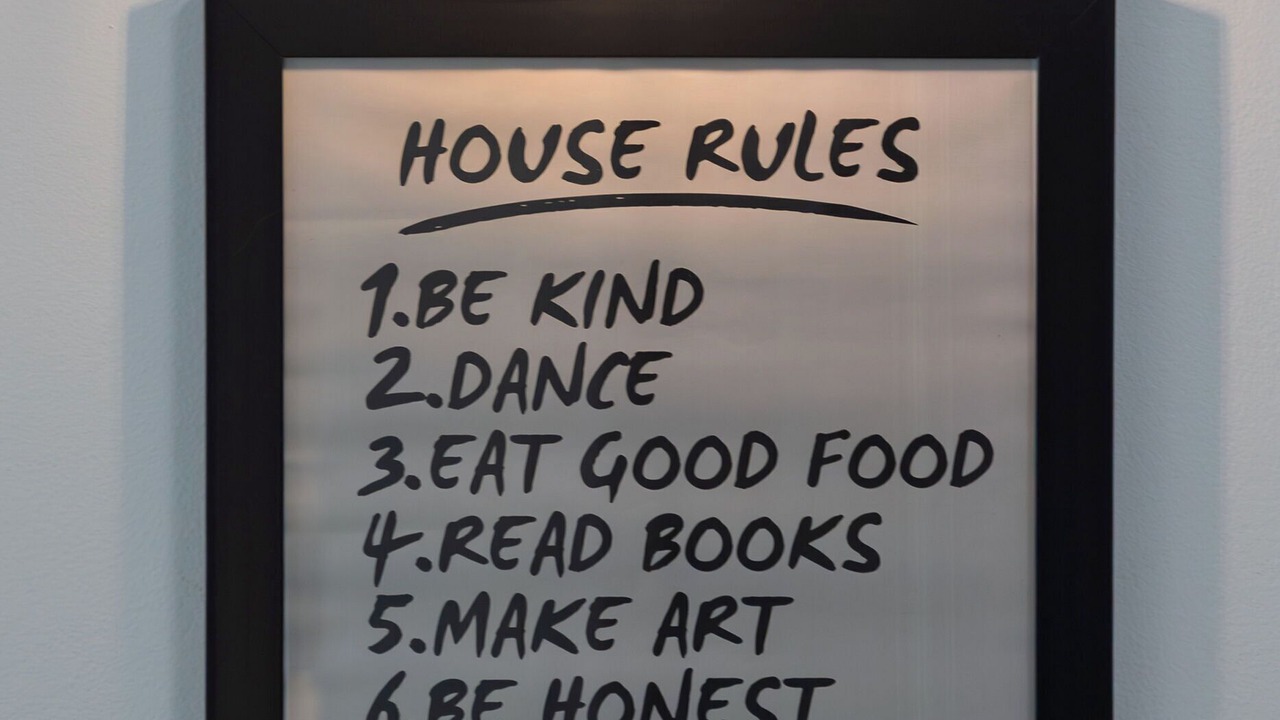 HOUSE RULES
1.BE KIND
2.DANCE
3.EAT GOOD FOOD
4.READ BOOKS
5.MAKE ART
6.BE HONEST